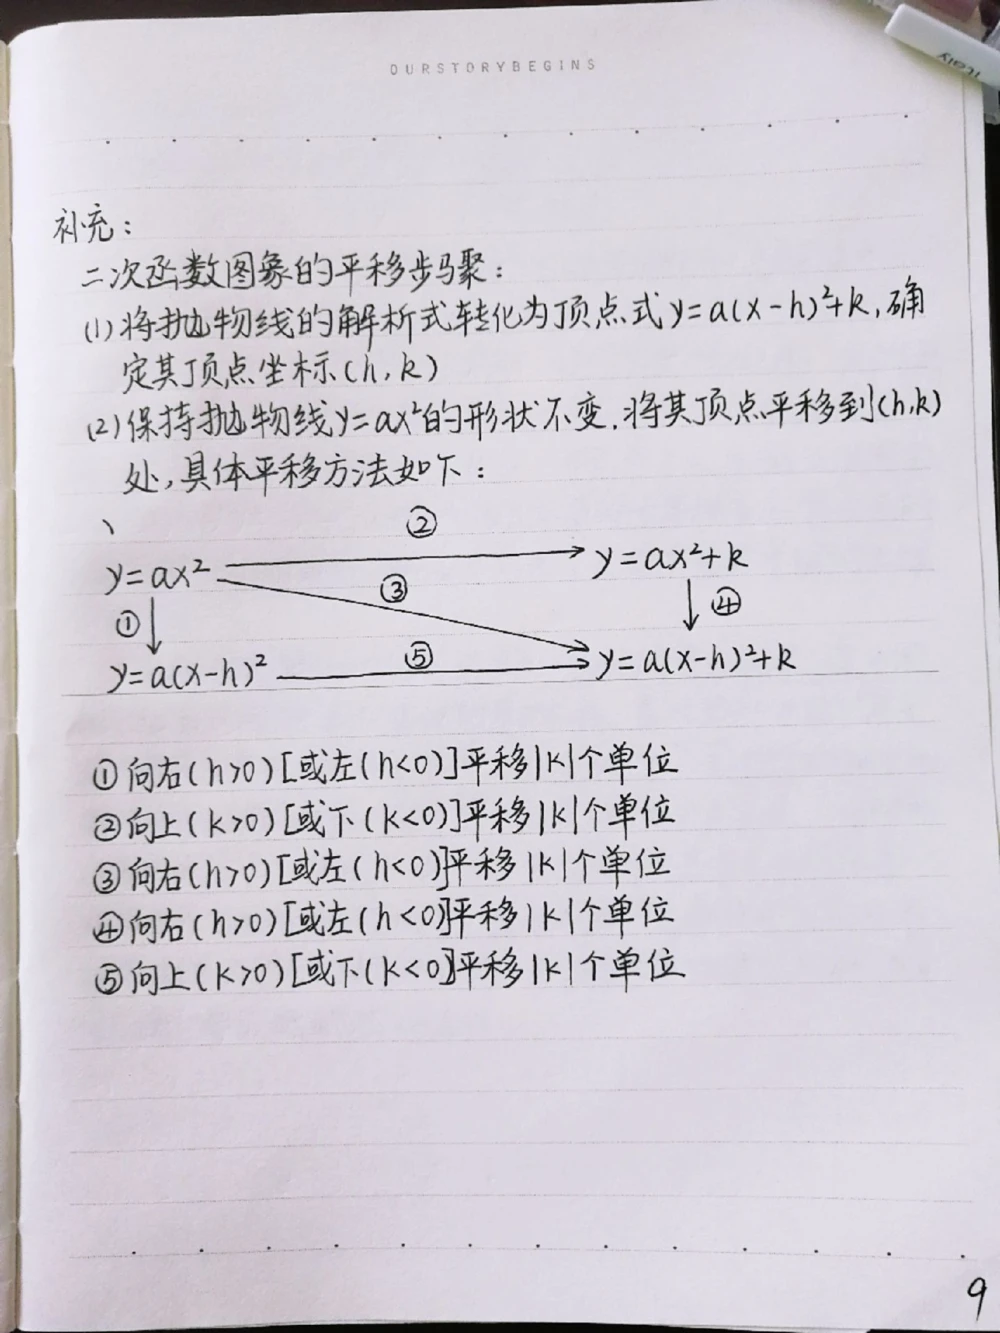 italy
OURSTORYBEGINS
补充：
二次函数图象的平移步骤：
(1)将抛物线的解析式转化为顶点式y=a(x-h)²+k,确
定其顶点坐标(h,k)
(2)保持抛物线y=ax²的形状不变.将其顶点平移到(h,k)
处,具体平移方法如下：
、
②
y=ax² y=ax²+k
③
① ④
⑤
y=a(x-h)² y=a(x-h)²+k
①向右(h>0)[或左(h<0)]平移|k|个单位
②向上(k>0)[或下(k<0)]平移|k|个单位
③向右(h>0)[或左(h<0)]平移|k|个单位
④向右(h>0)[或左(h<0)]平移|k|个单位
⑤向上(k>0)[或下(k<0)]平移|k|个单位
9